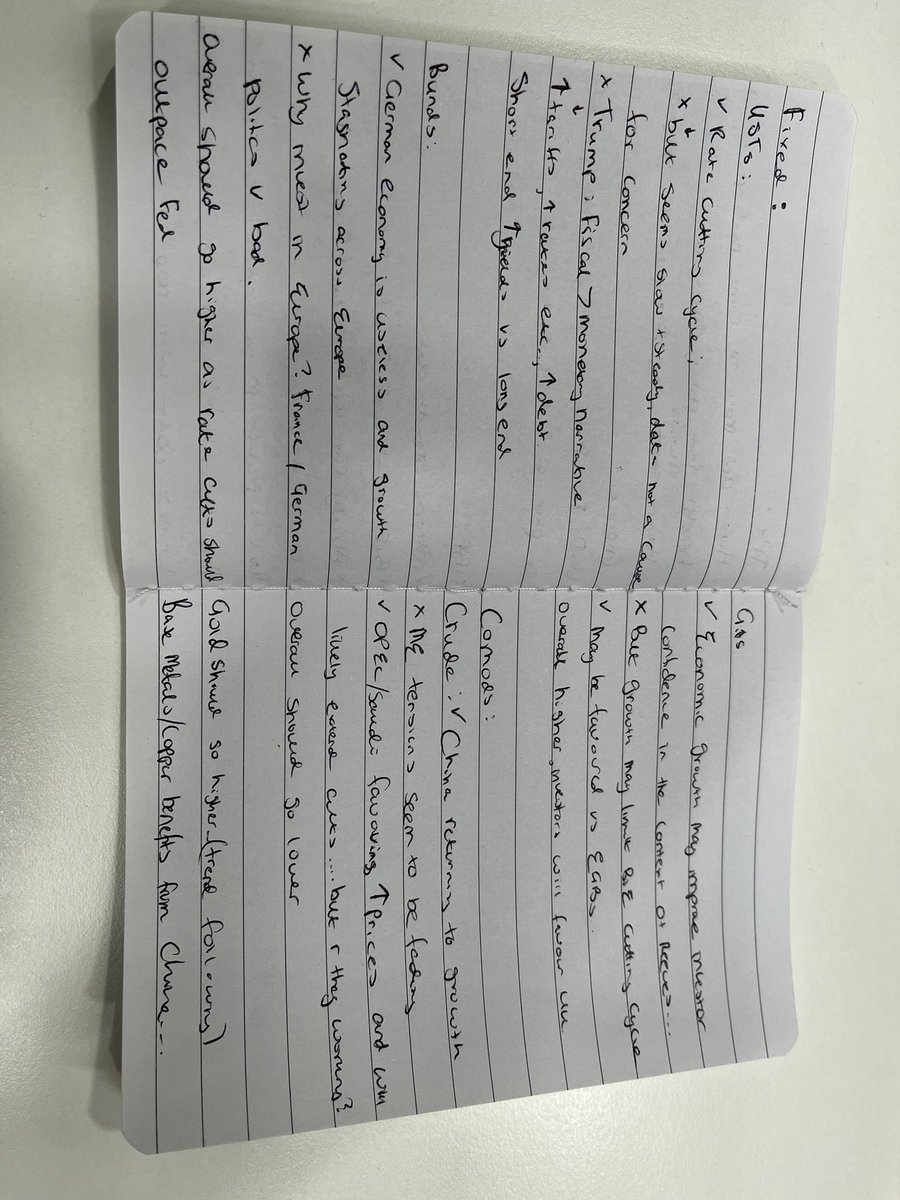 Fixed:
USTs:
✓ Rate cutting cycle;
↓
x but seems slow + steady, data not a cause
for concern
x Trump: Fiscal > Monetary narrative
↓
↑ tariffs, ↑ rates etc., ↑ debt
Short end ↑ yields vs long end
Bunds:
✓ German economy is useless and growth
stagnating across Europe
x Why invest in Europe? France / German
politics v bad.
overall should go higher as rate cuts should
outpace Fed
Gilts
✓ Economic growth may improve investor
confidence in the context of Reeves...
x But growth may limit BoE cutting cycle
✓ may be favoured vs EGBs..
overall higher, investors will favour UK
Comods:
Crude: ✓ China returning to growth
x ME tensions seem to be fading
✓ OPEC/Saudi favouring ↑ prices and will
likely extend cuts.... but r they working?
overall should go lower
Gold should go higher (trend following)
Base Metals/Copper benefits from China...